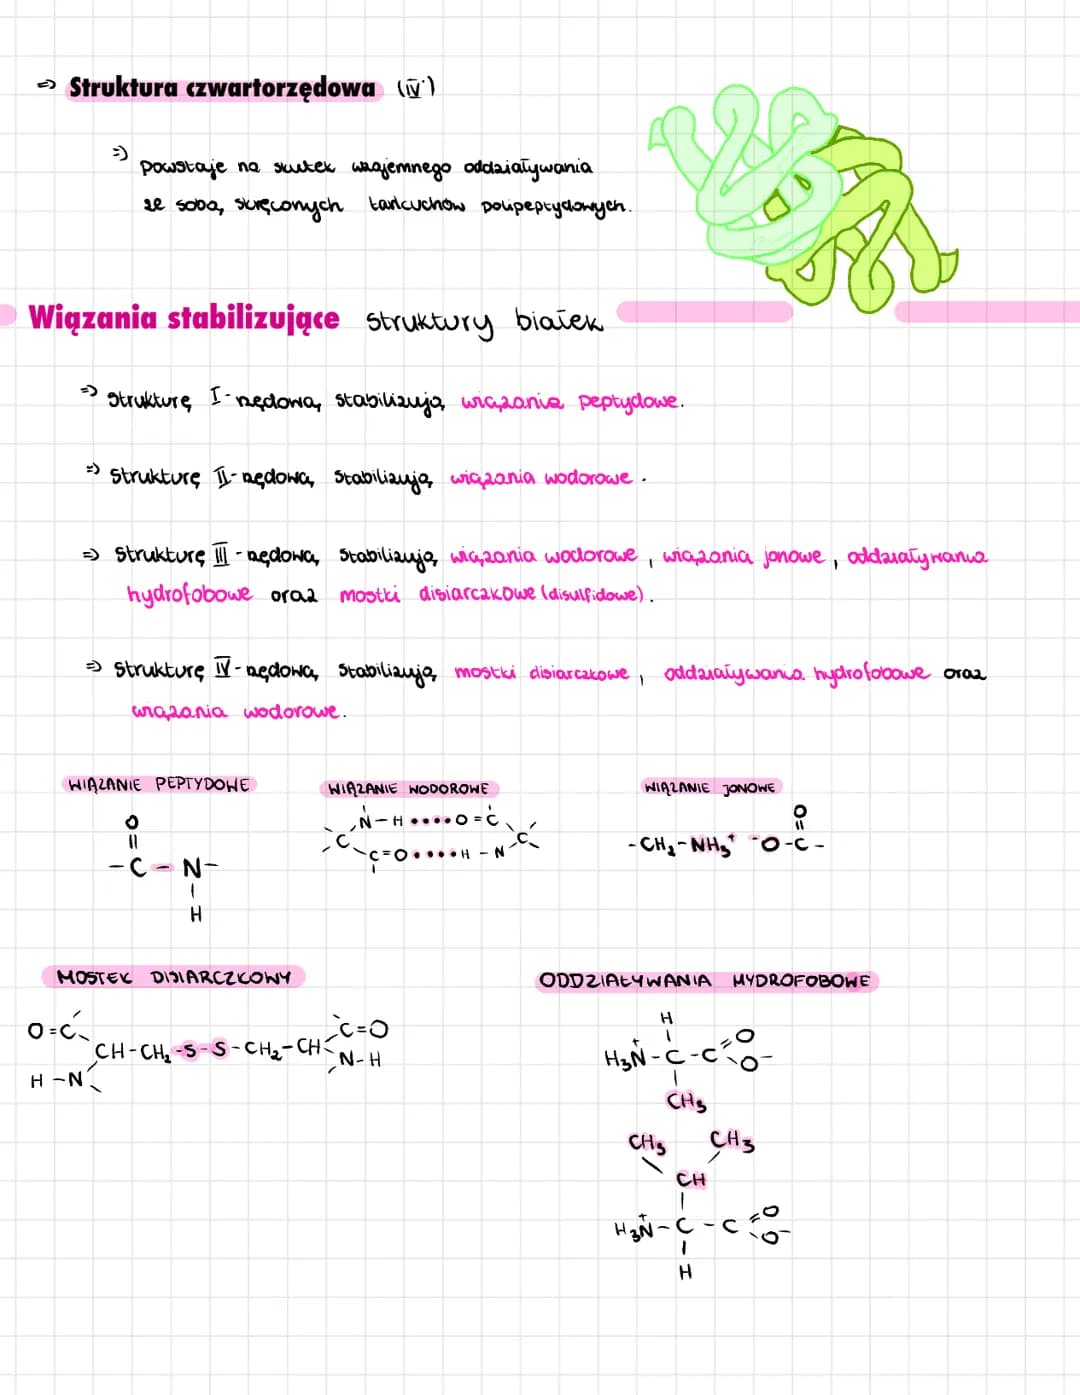 ⇒ Struktura czwartorzędowa (IV°)
⇒ powstaje na skutek wzajemnego oddziaływania
ze sobą, skręconych łańcuchów polipeptydowych.
Wiązania stabilizujące struktury białek
⇒ Strukturę I-rzędową stabilizują wiązania peptydowe.
⇒ Strukturę II-rzędową stabilizują wiązania wodorowe.
⇒ Strukturę III-rzędową stabilizują wiązania wodorowe, wiązania jonowe, oddziaływania
hydrofobowe oraz mostki disiarczkowe (disulfidowe).
⇒ Strukturę IV-rzędową stabilizują mostki disiarczkowe, oddziaływania hydrofobowe oraz
wiązania wodorowe.
WIĄZANIE PEPTYDOWE
O
-C-N-
H
WIĄZANIE WODOROWE
N-H••••O=C
C C
C=O••••H-N
WIĄZANIE JONOWE
O
-CH₂-NH₃⁺ ⁻O-C-
MOSTEK DISIARCZKOWY
O=C C=O
CH-CH₂-S-S-CH₂-CH
H-N N-H
ODDZIAŁYWANIA HYDROFOBOWE
H
H₃N⁺-C-C=O
O⁻
CH₃
CH₃ CH₃
CH
H₃N⁺-C-C=O
O⁻
H